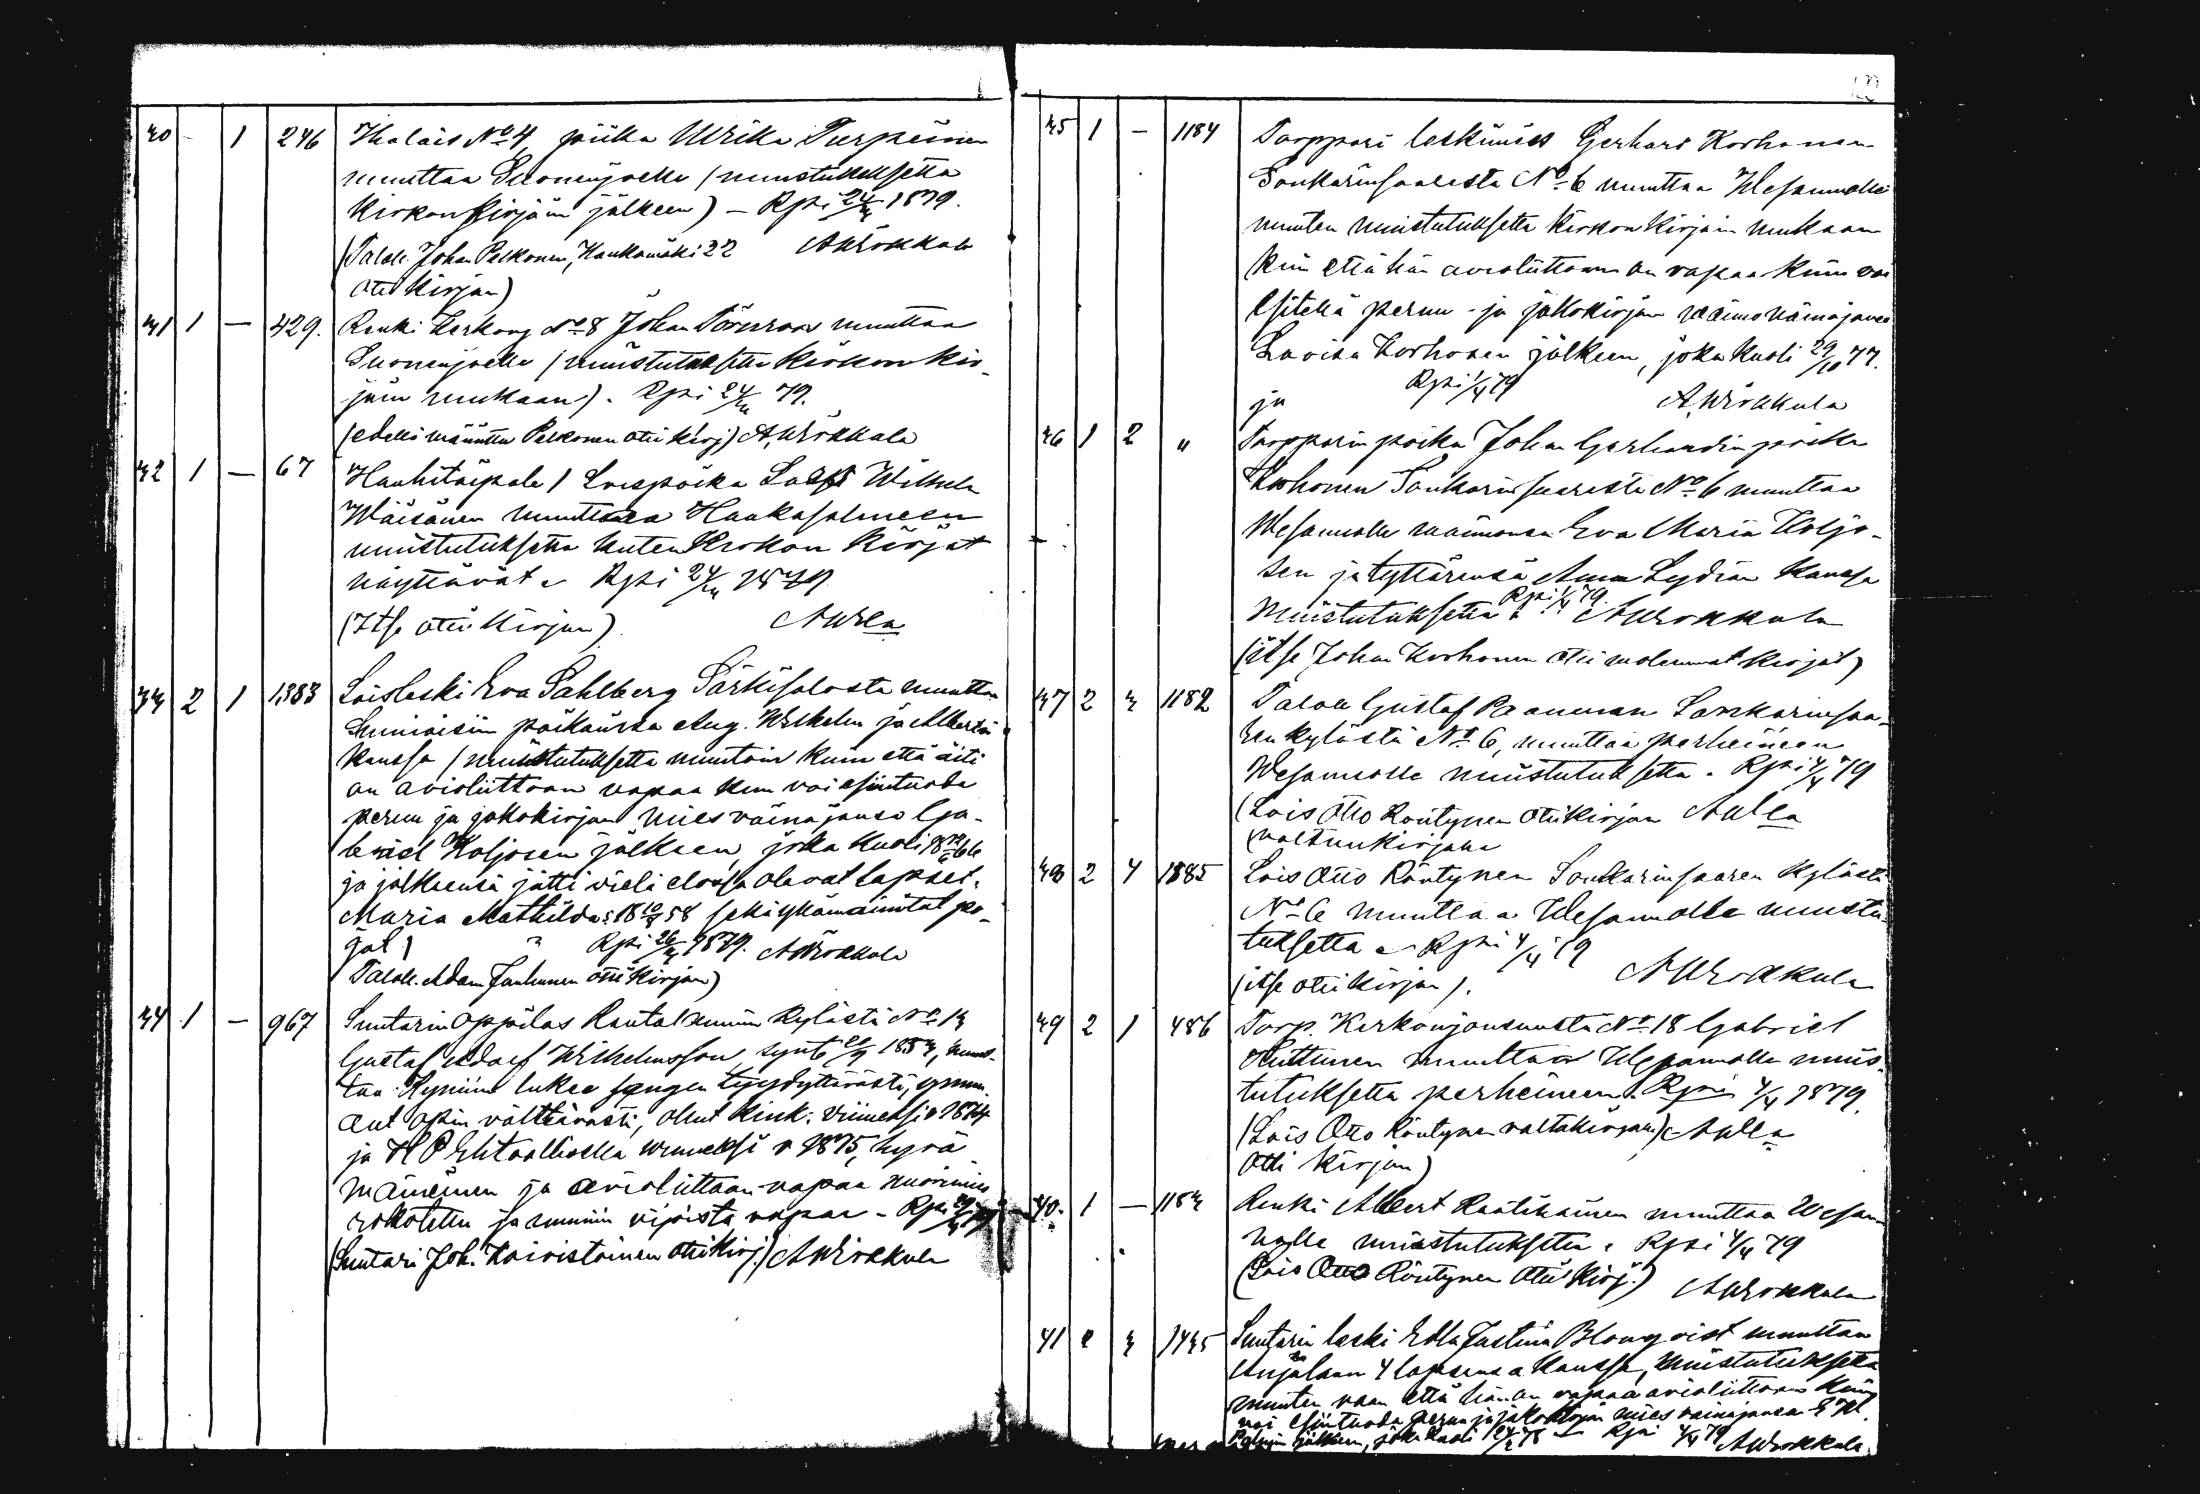 30 - 1 246 Ihalais No 4, piika Ulrika Turpeinen
muuttaa Suonenjoelle (muistutuksetta
kirkonkirjain jälkeen) — Rpi 24/3 1879.
(Talol. Johan Pelkonen, Haukamäki 22 AWrokkala
otti kirjan)
31 1 — 429. Renki No 8 Johan muuttaa
Suonenjoelle (muistutuksetta kirkon kir-
jain mukaan). Rpi 24/3 79.
(edellämainittu Pelkonen otti kirj) A. Wrokkala
32 1 — 67 Hanhitaipale / Loispoika Wilhelm
Wäisänen muuttaa Haukasalmeen
muistutuksetta kuten kirkon kirjat
näyttävät. Rpi 24/3 1879
(Itse otti kirjan) AWrla
33 2 1 1383 Loisleski Eva Sahlberg Särkisalosta muuttaa
poikainsa Aug. Wilhelm ja Albertin
kanssa (muistutuksetta muutoin kuin että äiti
on avioliittoon vapaa kun voi esiintuoda
perun ja jakokirjan miesvainajansa Ga-
briel Koljosen jälkeen, joka kuoli 66
ja jälkeensä jätti vielä elossa olevat lapset:
Maria Mathilda s 18 58 sekä ylkämainitut po-
jat) Rpi 26/3 1879. AWrokkala
Talol. Adam Janhunen otti kirjan)
34 1 — 967 Suutarin oppilas Rautalammin kylästä No 13
Gustaf Adolf Wilhelmsson, synt 1853, muut-
taa lukee sangen tyydyttävästi, ymmär-
opin välttävästi, ollut kink. viimeksi v 1874
ja H P Ehtoollisella viimeksi v 1875, hyvä
maineinen ja avioliittoon vapaa nuorimies
rokotettu ja ruumiin vioista vapaa — Rpi
(Suutari Joh. Koivistoinen otti kirj.) AWrokkala
35 1 — 1184 Torppari leskimies Gerhard Korhonen
Sonkarinsaaresta No 6 muuttaa Wesannolle
muuten muistutuksetta kirkon kirjain mukaan
kuin että hän avioliittoon on vapaa kuin voi
esitellä perun- ja jakokirjan vaimovainajansa
Lovisa Korhosen jälkeen, joka kuoli 29/10 77.
ja Rpi 1/4 79 A. Wrokkala
36 1 2 " Torpparin poika Johan Gerhardin poika
Korhonen Sonkarinsaaresta No 6 muuttaa
Wesannolle vaimonsa Eva Maria Koljo-
sen ja tyttärensä Anna Lydian kanssa
muistutuksetta. Rpi 1/4 79. AWrokkala
(itse Johan Korhonen otti molemmat kirjat)
37 2 3 1182 Talol Gustaf Paananen Sonkarinsaa-
ren kylästä No 6, muuttaa perheineen
Wesannolle muistutuksetta. Rpi 4/4 79
(Lois Otto Röntynen otti kirjan AWla
valtuuskirjalla
38 2 4 1885 Lois Otto Röntynen Sonkarinsaaren kylästä
No 6 muuttaa Wesannolle muistu-
tuksetta. Rpi 4/4 79
(itse otti kirjan). AWrokkala
39 2 1 486 Torp. Kerkonjoensuusta No 18 Gabriel
Huttunen muuttaa Wesannolle muis-
tutuksetta perheineen. Rpi 4/4 1879.
(Lois Otto Röntynen valtakirjan) AWla
otti kirjan)
40. 1 — 1183 Renki Albert Raatikainen muuttaa Wesan-
nolle muistutuksetta. Rpi 4/4 79
(Lois Otto Röntynen otti kirj.) AWrokkala
41 2 3 1435 Suutarin leski Edla Justiina Blomqvist muuttaa
4 lapsensa kanssa, muistutuksetta
muuten vaan että hän on vapaa avioliittoon kun
voi esiintuoda perun ja jakokirjan miesvainajansa
jälkeen, joka kuoli Rpi 4/4 79 AWrokkala